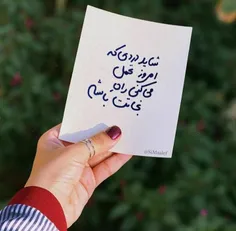 شاید دردی که
امروز تحمل
می‌کنی راه
نجاتت باشه